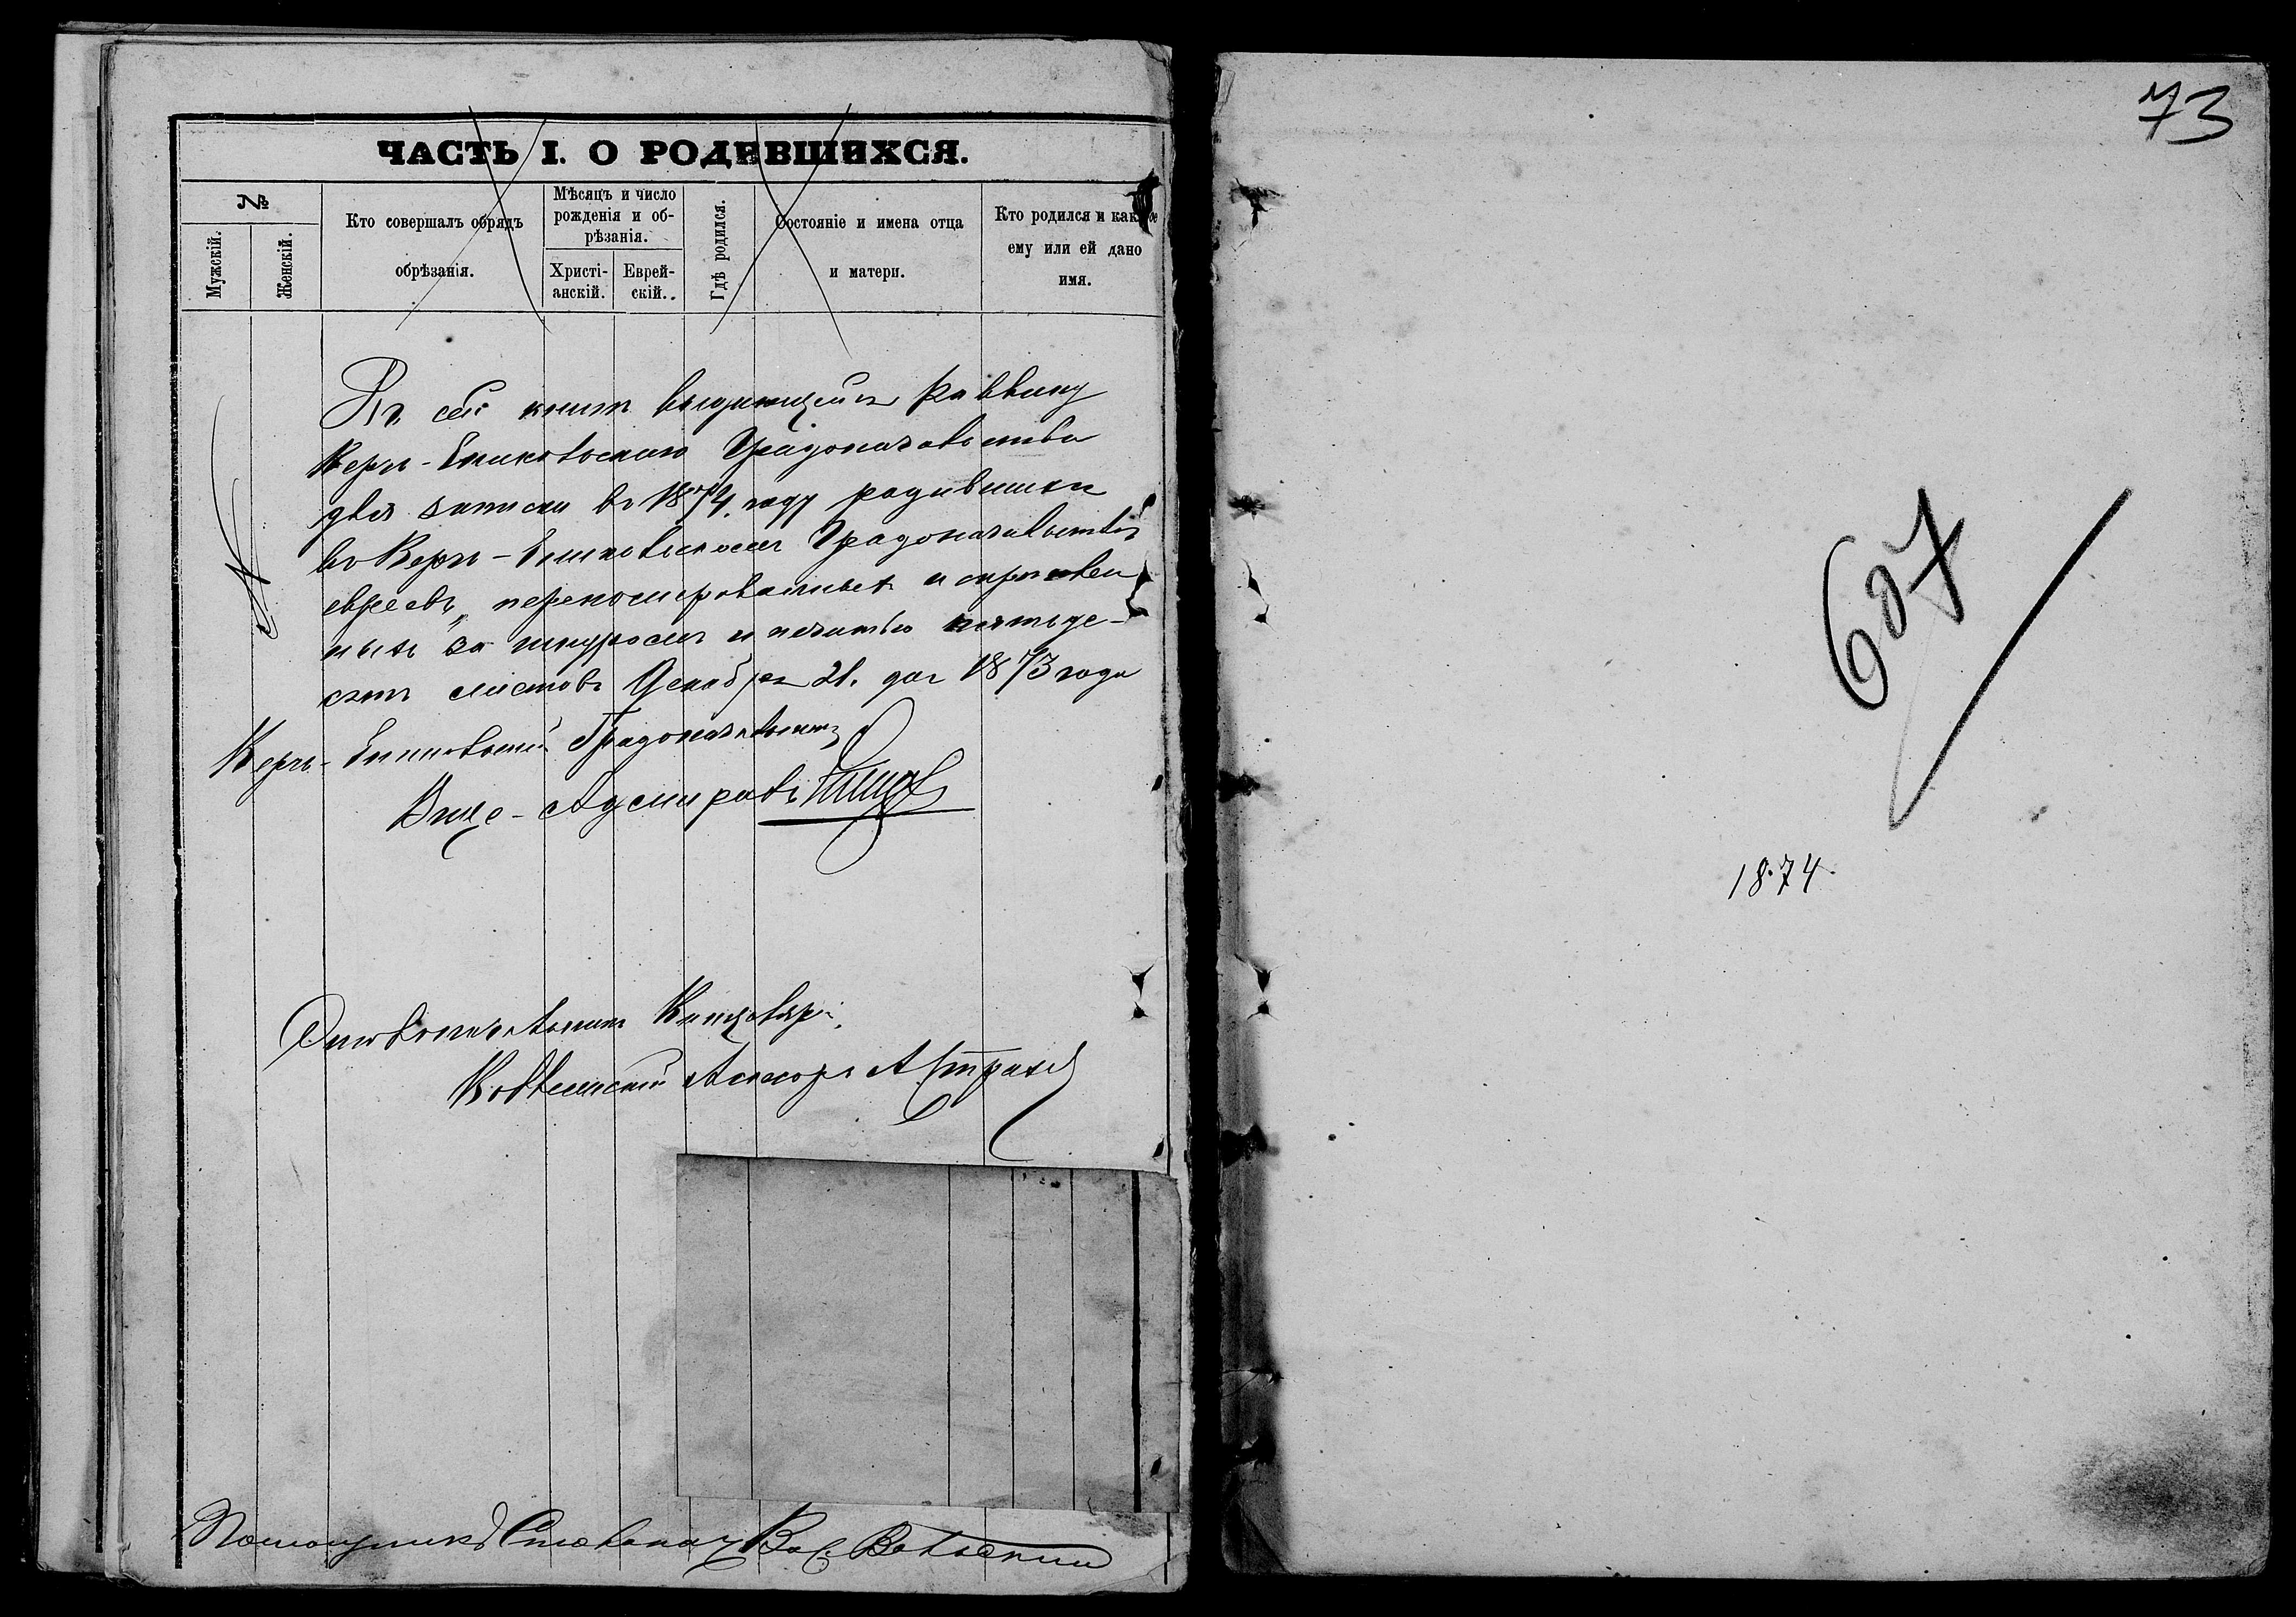 ЧАСТЬ I. О РОДИВШИХСЯ.
№
Мужскій.
Женскій.
Кто совершалъ обрядъ
обрѣзанія.
Мѣсяцъ и число
рожденія и об-
рѣзанія.
Христі-
анскій.
Еврей-
скій.
Гдѣ родился.
Состояніе и имена отца
и матери.
Кто родился и какое
ему или ей дано
имя.
Въ сей книгѣ выдающейся Раввину
Керчь-Еникольскаго Градоначальства
для записки въ 1874. году родившихся
въ Керчь-Еникольскомъ Градоначальствѣ
евреевъ, перенумерованныхъ и скрѣплен
ныхъ за шнуромъ и печатью пятьде-
сятъ листовъ Декабря 21. дня 1873 года
Керчь-Еникольскій Градоначальникъ
Вице-Адмиралъ
Дѣлопроизводитель Канцеляріи
Коллежскій Асесоръ А Страх
Помощникъ Столонач
73
607
1874.